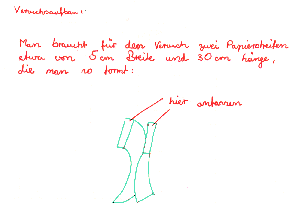 Versuchsaufbau:
Man braucht für den Versuch zwei Papierstreifen
etwa von 5 cm Breite und 30 cm Länge,
die man so formt:
hier anfassen